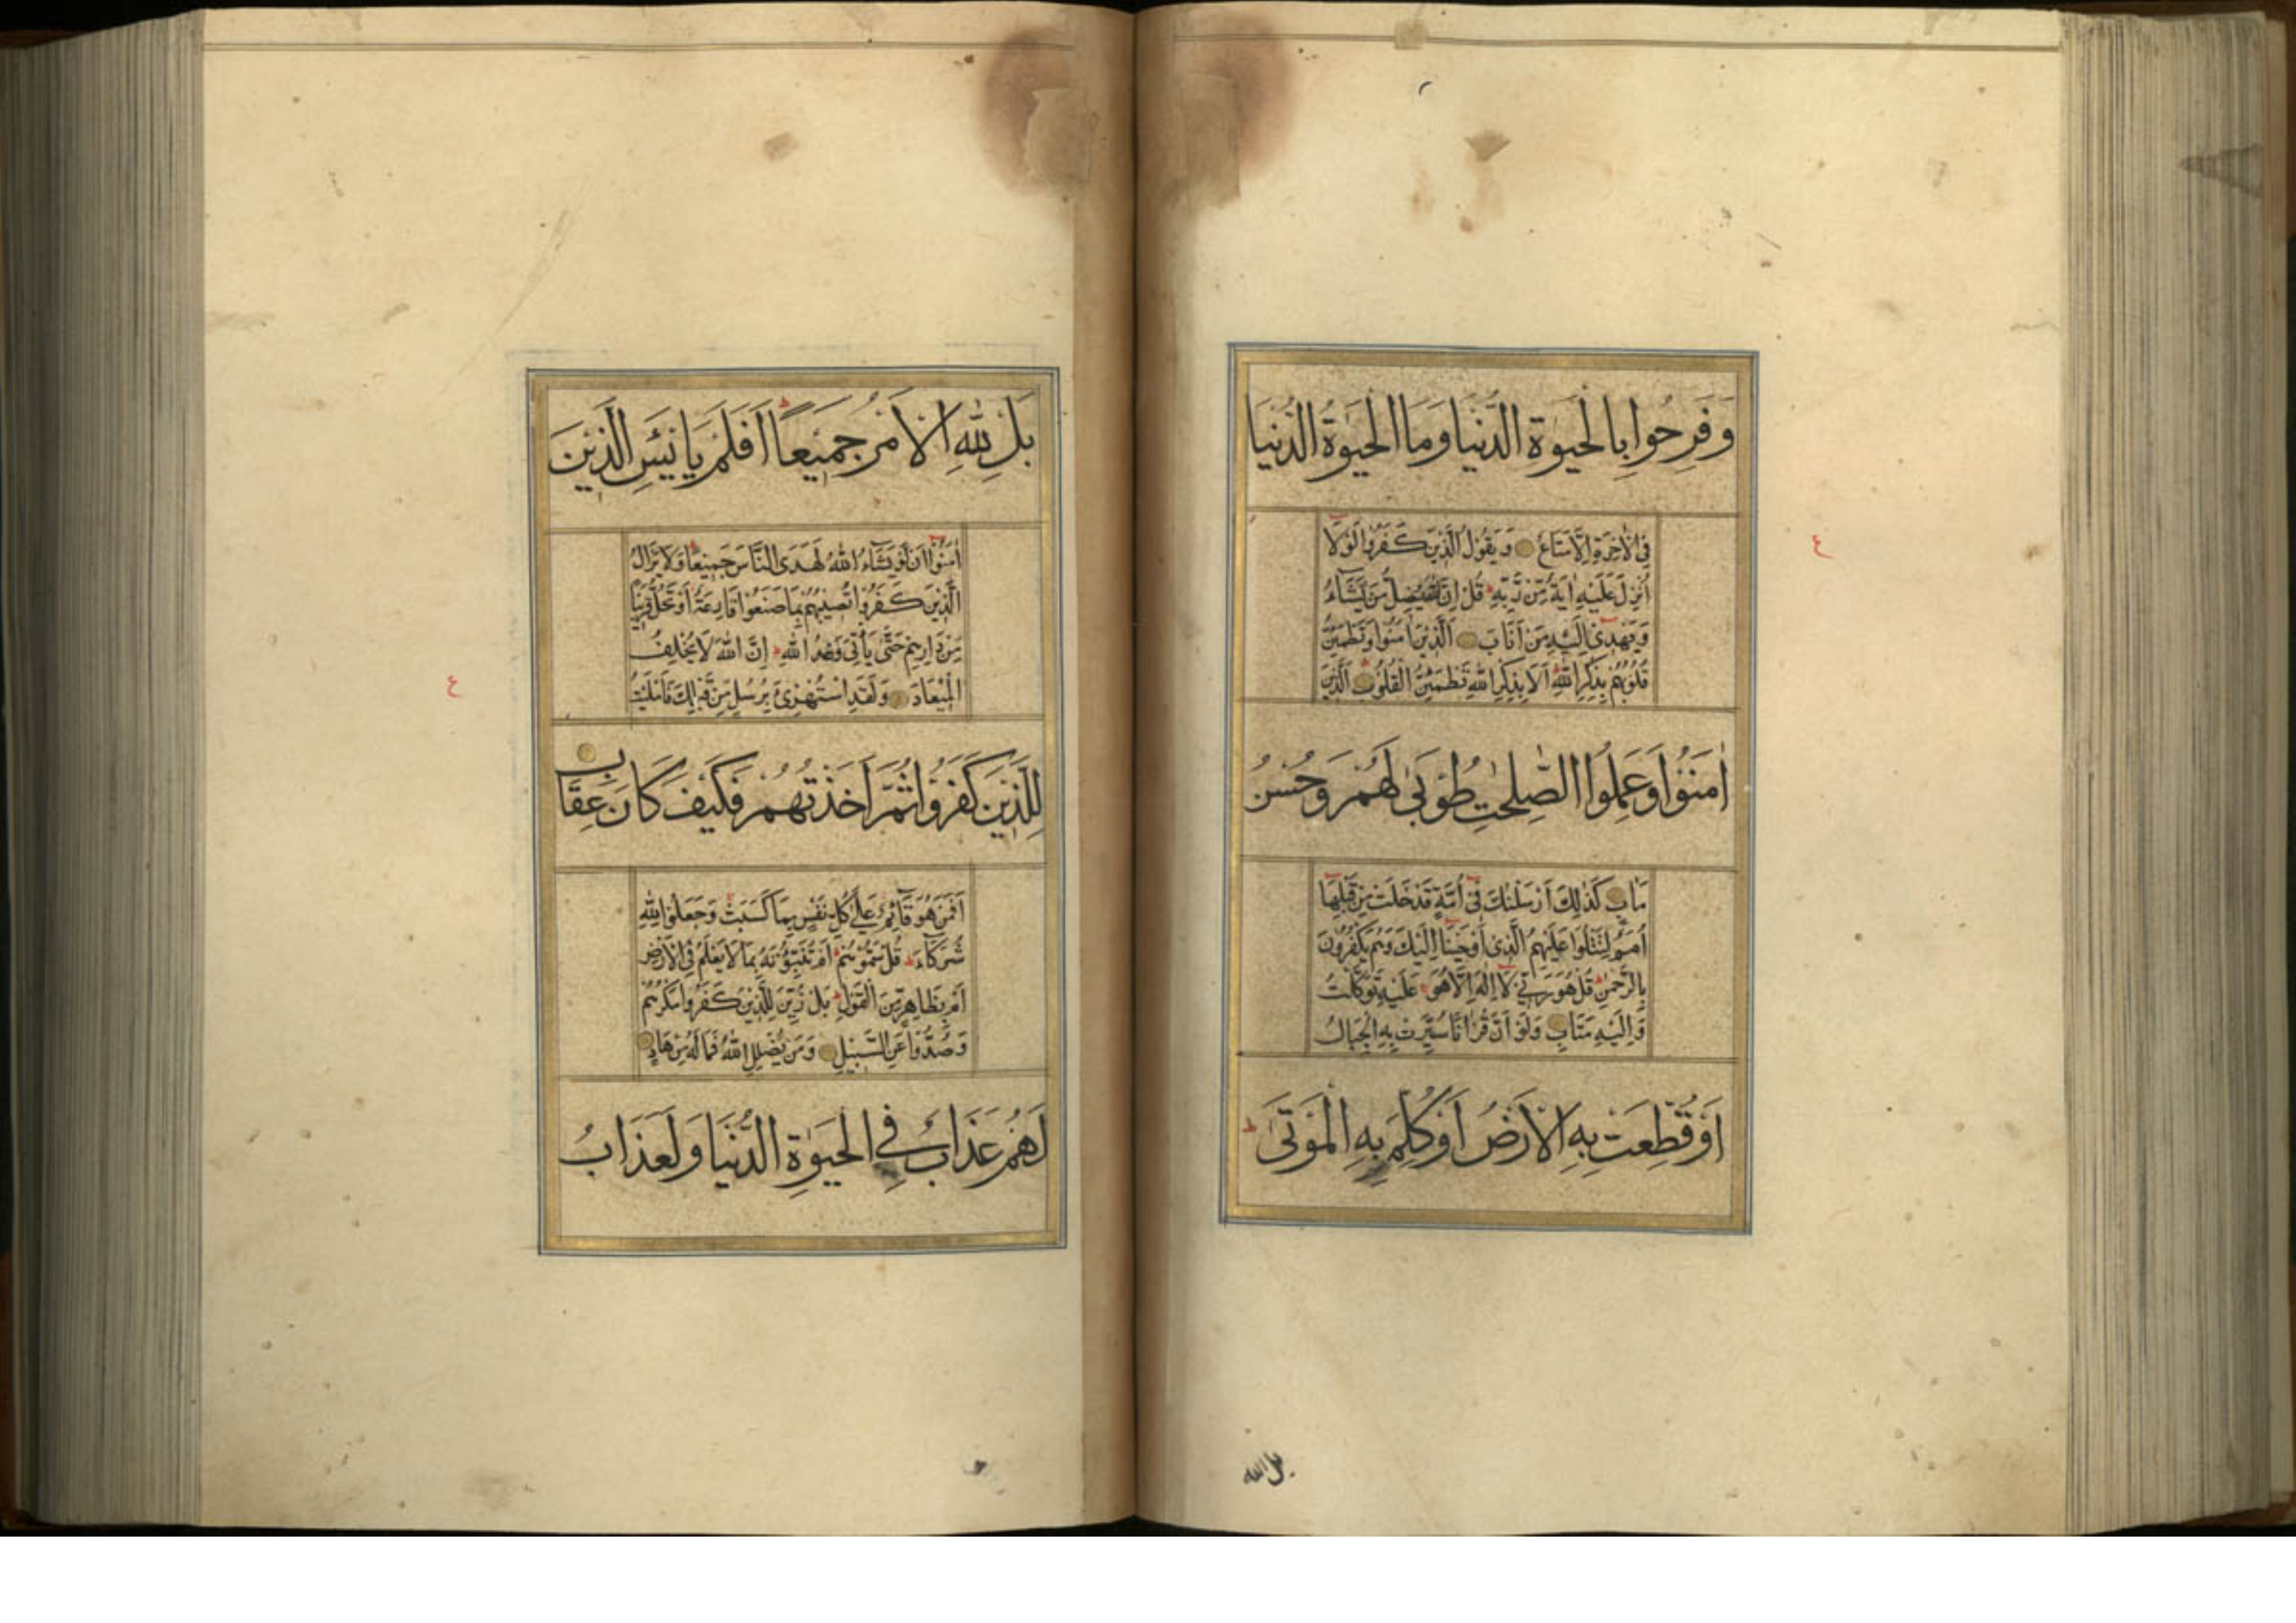 وَفَرِحُوا بِالْحَيٰوةِ الدُّنْيَا وَمَا الْحَيٰوةُ الدُّنْيَا
فِي الْاٰخِرَةِ اِلَّا مَتَاعٌ وَيَقُولُ الَّذِينَ كَفَرُوا لَوْلَا
اُنْزِلَ عَلَيْهِ اٰيَةٌ مِّنْ رَّبِّهٖ ط قُلْ اِنَّ اللّٰهَ يُضِلُّ مَنْ يَّشَآءُ
وَيَهْدِيٓ اِلَيْهِ مَنْ اَنَابَ اَلَّذِينَ اٰمَنُوا وَتَطْمَئِنُّ
قُلُوبُهُمْ بِذِكْرِ اللّٰهِ ط اَلَا بِذِكْرِ اللّٰهِ تَطْمَئِنُّ الْقُلُوبُ اَلَّذِينَ
اٰمَنُوا وَعَمِلُوا الصّٰلِحٰتِ طُوبٰى لَهُمْ وَحُسْنُ
مَاٰبٍ كَذٰلِكَ اَرْسَلْنٰكَ فِيٓ اُمَّةٍ قَدْ خَلَتْ مِنْ قَبْلِهَآ
اُمَمٌ لِّتَتْلُوَا عَلَيْهِمُ الَّذِيٓ اَوْحَيْنَآ اِلَيْكَ وَهُمْ يَكْفُرُونَ
بِالرَّحْمٰنِ ط قُلْ هُوَ رَبِّي لَآ اِلٰهَ اِلَّا هُوَ عَلَيْهِ تَوَكَّلْتُ
وَاِلَيْهِ مَتَابِ وَلَوْ اَنَّ قُرْاٰنًا سُيِّرَتْ بِهِ الْجِبَالُ
اَوْ قُطِّعَتْ بِهِ الْاَرْضُ اَوْ كُلِّمَ بِهِ الْمَوْتٰى ط
ع
بل لله
بَلْ لِّلّٰهِ الْاَمْرُ جَمِيعًا ط اَفَلَمْ يَايْئَسِ الَّذِينَ
اٰمَنُوٓا اَنْ لَّوْ يَشَآءُ اللّٰهُ لَهَدَى النَّاسَ جَمِيعًا ط وَلَا يَزَالُ
الَّذِينَ كَفَرُوا تُصِيبُهُمْ بِمَا صَنَعُوا قَارِعَةٌ اَوْ تَحُلُّ قَرِيبًا
مِّنْ دَارِهِمْ حَتّٰى يَأْتِيَ وَعْدُ اللّٰهِ ط اِنَّ اللّٰهَ لَا يُخْلِفُ
الْمِيعَادَ وَلَقَدِ اسْتُهْزِئَ بِرُسُلٍ مِّنْ قَبْلِكَ فَاَمْلَيْتُ
لِلَّذِينَ كَفَرُوا ثُمَّ اَخَذْتُهُمْ فَكَيْفَ كَانَ عِقَابِ
اَفَمَنْ هُوَ قَآئِمٌ عَلٰى كُلِّ نَفْسٍ بِمَا كَسَبَتْ وَجَعَلُوا لِلّٰهِ
شُرَكَآءَ ط قُلْ سَمُّوهُمْ ط اَمْ تُنَبِّؤُنَهٗ بِمَا لَا يَعْلَمُ فِي الْاَرْضِ
اَمْ بِظَاهِرٍ مِّنَ الْقَوْلِ ط بَلْ زُيِّنَ لِلَّذِينَ كَفَرُوا مَكْرُهُمْ
وَصُدُّوا عَنِ السَّبِيلِ وَمَنْ يُّضْلِلِ اللّٰهُ فَمَا لَهٗ مِنْ هَادٍ
لَهُمْ عَذَابٌ فِي الْحَيٰوةِ الدُّنْيَا وَلَعَذَابُ
ع